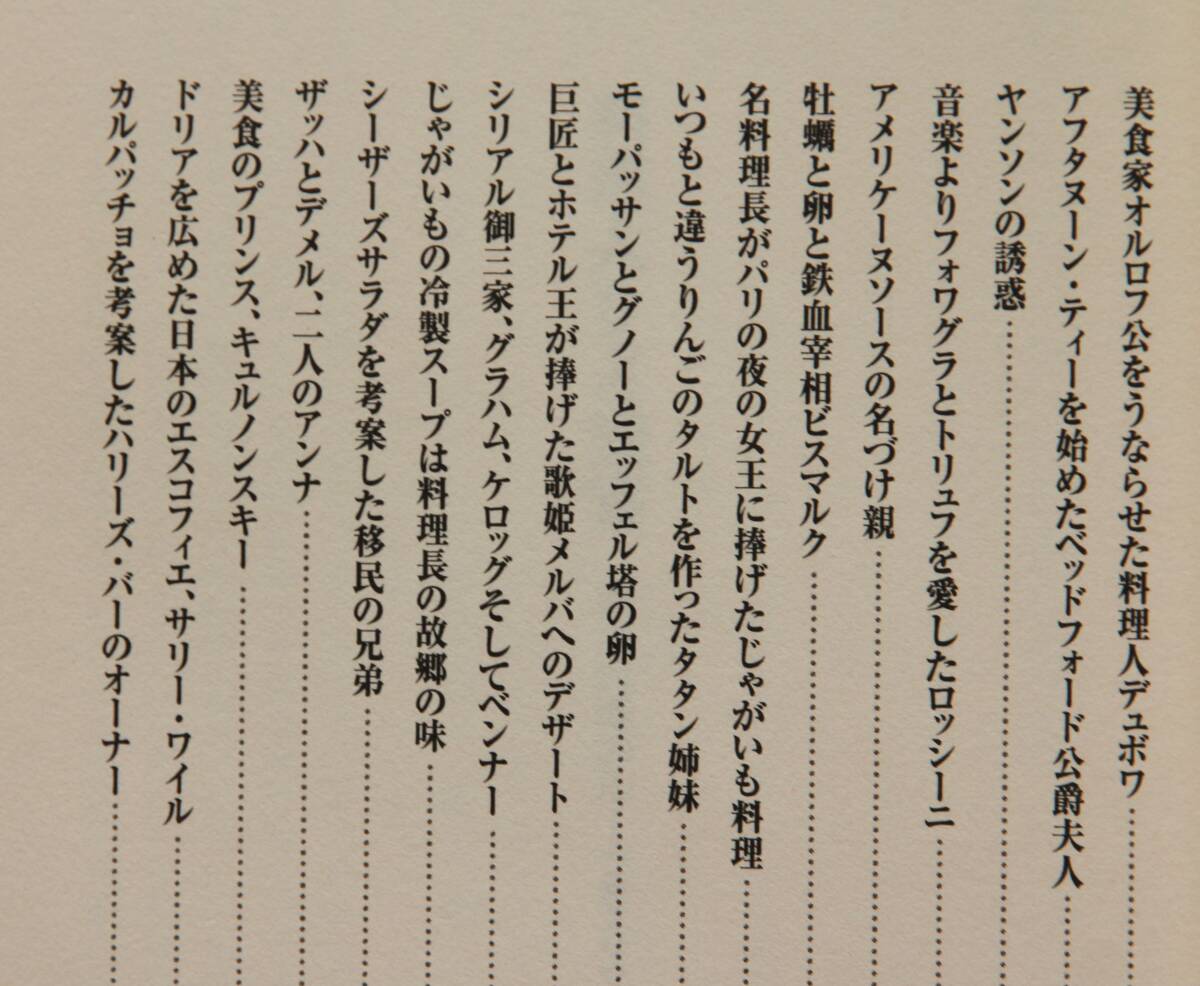 美食家オルロフ公をうならせた料理人デュボワ…………
アフタヌーン・ティーを始めたベッドフォード公爵夫人…………
ヤンソンの誘惑…………
音楽よりフォワグラとトリュフを愛したロッシーニ…………
アメリケーヌソースの名づけ親…………
牡蠣と卵と鉄血宰相ビスマルク…………
名料理長がパリの夜の女王に捧げたじゃがいも料理…………
いつもと違うりんごのタルトを作ったタタン姉妹…………
モーパッサンとグノーとエッフェル塔の卵…………
巨匠とホテル王が捧げた歌姫メルバへのデザート…………
シリアル御三家、グラハム、ケロッグそしてベンナー…………
じゃがいもの冷製スープは料理長の故郷の味…………
シーザーズサラダを考案した移民の兄弟…………
ザッハとデメル、二人のアンナ…………
美食のプリンス、キュルノンスキー…………
ドリアを広めた日本のエスコフィエ、サリー・ワイル…………
カルパッチョを考案したハリーズ・バーのオーナー…………